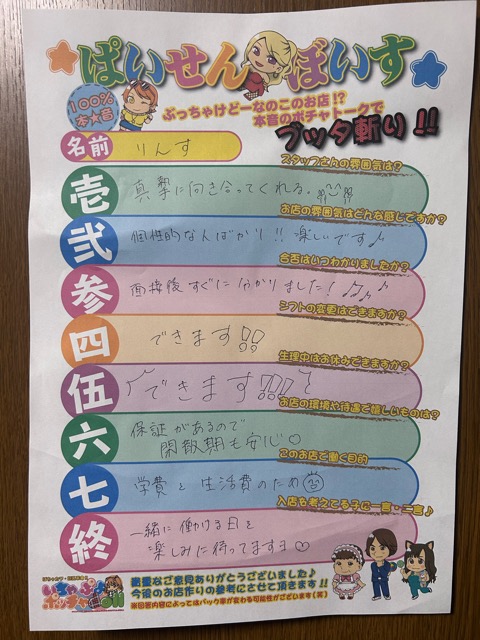 ぱいせんぼいす
100%
本★音
ぶっちゃけどーなのこのお店!?
本音のポチャトークで
ブッタ斬り!!
名前 りんす
スタッフさんの雰囲気は?
壱 真摯に向き合ってくれる。
お店の雰囲気はどんな感じですか?
弐 個性的な人ばかり!!楽しいです♪
合否はいつわかりましたか?
参 面接後すぐに分かりました!♪♪
シフトの変更はできますか?
四 できます!!
生理中はお休みできますか?
伍 できます!!!
お店の環境や待遇で嬉しいものは?
六 保証があるので
閑散期も安心♡
このお店で働く目的
七 学費と生活費のため
入店を考えてる子に一言・二言♪
終 一緒に働ける日を
楽しみに待ってますね♡
貴重なご意見ありがとうございました♪
今後のお店作りの参考にさせて頂きます!!
※回答内容によってはバック率が変わる可能性がございます(笑)